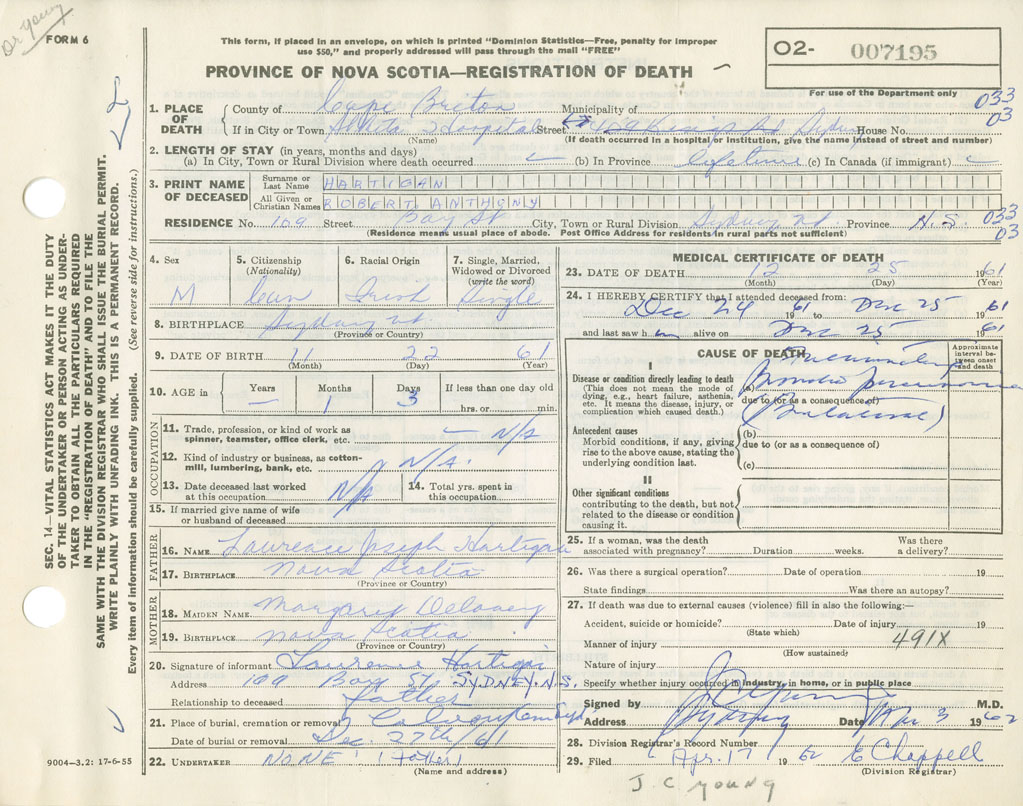 Dr Young
FORM 6
This form, if placed in an envelope, on which is printed "Dominion Statistics—Free, penalty for improper
use $50," and properly addressed will pass through the mail "FREE"
PROVINCE OF NOVA SCOTIA—REGISTRATION OF DEATH
O2- 007195
For use of the Department only
033
03
1. PLACE OF DEATH
County of Cape Breton Municipality of
If in City or Town Hospital Street House No.
(Name) (If death occurred in a hospital or institution, give the name instead of street and number)
2. LENGTH OF STAY (in years, months and days)
(a) In City, Town or Rural Division where death occurred (b) In Province lifetime (c) In Canada (if immigrant)
3. PRINT NAME OF DECEASED
Surname or Last Name HARTIGAN
All Given or Christian Names ROBERT ANTHONY
RESIDENCE No. 109 Street Bay St City, Town or Rural Division Sydney Province N.S. 033
03
(Residence means usual place of abode. Post Office Address for residents in rural parts not sufficient)
4. Sex M
5. Citizenship (Nationality) Can
6. Racial Origin Irish
7. Single, Married, Widowed or Divorced (write the word) Single
8. BIRTHPLACE Sydney
(Province or Country)
9. DATE OF BIRTH 11 22 61
(Month) (Day) (Year)
10. AGE in Years — Months 1 Days 3 If less than one day old
hrs. or min.
OCCUPATION
11. Trade, profession, or kind of work as
spinner, teamster, office clerk, etc. N/A
12. Kind of industry or business, as cotton-
mill, lumbering, bank, etc. N/A.
13. Date deceased last worked
at this occupation N/A
14. Total yrs. spent in
this occupation
15. If married give name of wife
or husband of deceased
FATHER
16. NAME Laurence Joseph Hartigan
17. BIRTHPLACE Nova Scotia
(Province or Country)
MOTHER
18. MAIDEN NAME Margaret Delaney
19. BIRTHPLACE Nova Scotia
(Province or Country)
20. Signature of informant Laurence Hartigan
Address 109 Bay St. SYDNEY. N.S,
Relationship to deceased Father
21. Place of burial, cremation or removal
Date of burial or removal Dec. 27th/61
22. UNDERTAKER NONE (Father)
(Name and address)
MEDICAL CERTIFICATE OF DEATH
23. DATE OF DEATH 12 25 1961
(Month) (Day) (Year)
24. I HEREBY CERTIFY that I attended deceased from:
Dec 24 1961 to Dec 25 1961
and last saw him alive on Dec 25 1961
CAUSE OF DEATH
Approximate interval between onset and death
I
Disease or condition directly leading to death
(This does not mean the mode of
dying, e.g., heart failure, asthenia,
etc. It means the disease, injury, or
complication which caused death.)
(a) Broncho pneumonia
due to (or as a consequence of)
(Bilateral)
Antecedent causes
Morbid conditions, if any, giving
rise to the above cause, stating the
underlying condition last.
(b)
due to (or as a consequence of)
(c)
II
Other significant conditions
contributing to the death, but not
related to the disease or condition
causing it.
25. If a woman, was the death Was there
associated with pregnancy? Duration weeks. a delivery?
26. Was there a surgical operation? Date of operation 19
State findings Was there an autopsy?
27. If death was due to external causes (violence) fill in also the following:—
Accident, suicide or homicide? Date of injury 19
(State which)
Manner of injury 491X
(How sustained)
Nature of injury
Specify whether injury occurred in industry, in home, or in public place
Signed by M.D.
Address Sydney Date Apr 3 1962
28. Division Registrar's Record Number
29. Filed Apr. 17 1962 E Chappell
(Division Registrar)
J. C. Young
SEC. 14—VITAL STATISTICS ACT MAKES IT THE DUTY
OF THE UNDERTAKER OR PERSON ACTING AS UNDER-
TAKER TO OBTAIN ALL THE PARTICULARS REQUIRED
IN THE "REGISTRATION OF DEATH" AND TO FILE THE
SAME WITH THE DIVISION REGISTRAR WHO SHALL ISSUE THE BURIAL PERMIT.
WRITE PLAINLY WITH UNFADING INK. THIS IS A PERMANENT RECORD.
Every item of information should be carefully supplied. (See reverse side for instructions.)
9004—3.2: 17-6-55